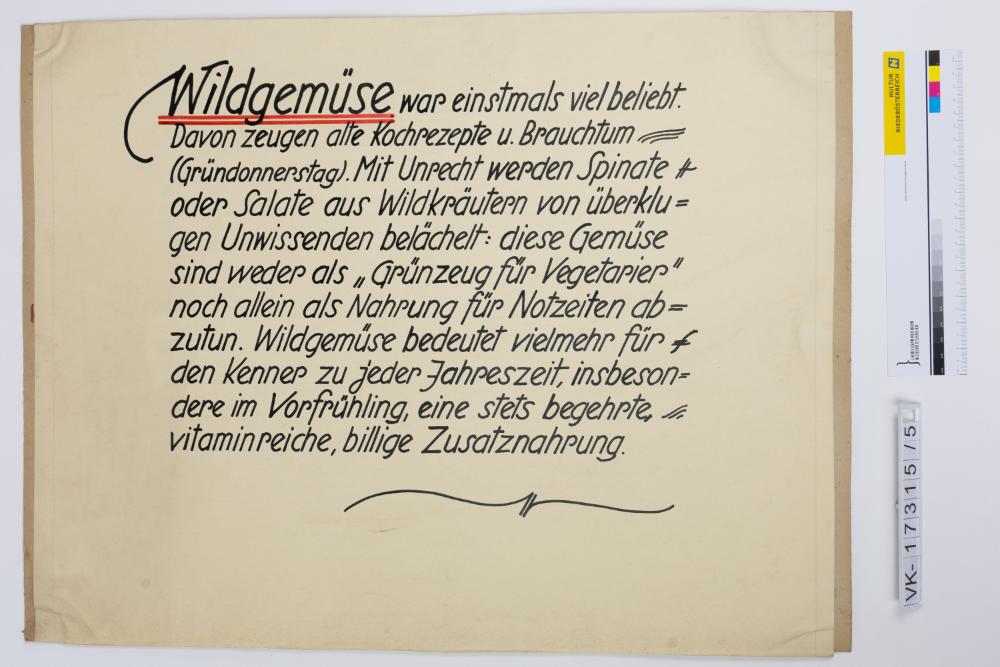 Wildgemüse war einstmals viel beliebt.
Davon zeugen alte Kochrezepte u. Brauchtum
(Gründonnerstag). Mit Unrecht werden Spinate
oder Salate aus Wildkräutern von überklu=
gen Unwissenden belächelt: diese Gemüse
sind weder als „Grünzeug für Vegetarier"
noch allein als Nahrung für Notzeiten ab=
zutun. Wildgemüse bedeutet vielmehr für
den Kenner zu jeder Jahreszeit, insbeson=
dere im Vorfrühling, eine stets begehrte,
vitaminreiche, billige Zusatznahrung.
KULTUR
NIEDERÖSTERREICH
LANDESSAMMLUNGEN
NIEDERÖSTERREICH
VK-17315/5